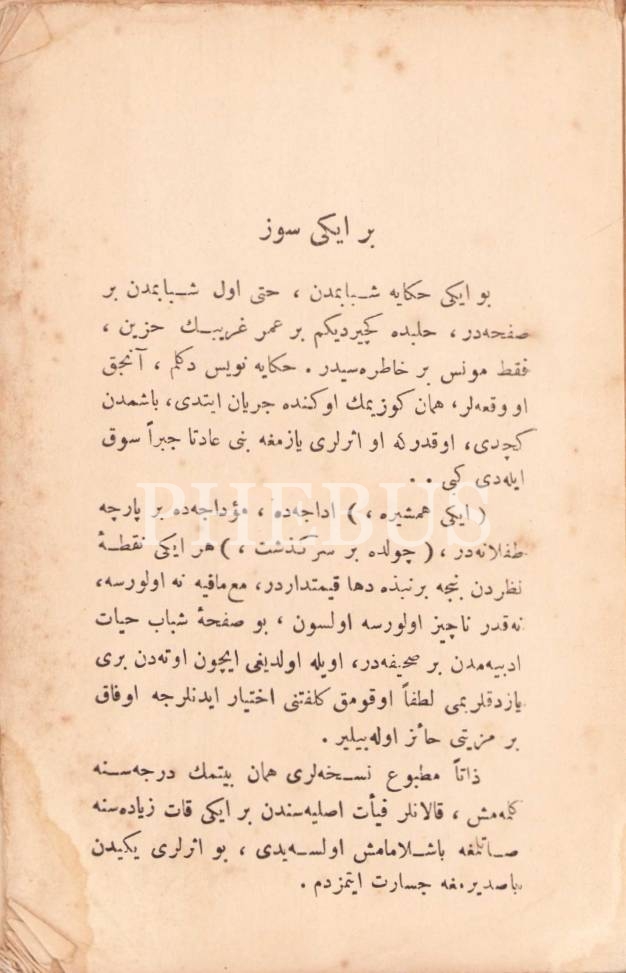 بر ایکی سوز
بو ایکی حکایه شبابمدن ، حتی اول شبابمدن بر
صفحه‌در ، حلبده کچیردیکم بر عمر غریبك حزین ،
فقط مونس بر خاطره‌سیدر . حکایه نویس دکلم ، آنجق
او وقعه‌لر، همان کوزیمك اوکنده جریان ایتدی، باشمدن
کچدی، اوقدرکه او اثرلری یازمغه بنی عادتا جبراً سوق
ایله‌دی کبی . .
( ایکی همشیره ، ) اداجه‌ده ، مؤداجه‌ده بر پارچه
طفلانه‌در ، ( چولده بر سرکذشت ، ) هر ایکی نقطهٔ
نظردن نجه برنبذه دها قیمتداردر، مع‌مافیه نه اولورسه،
نه‌قدر ناچیز اولورسه اولسون ، بو صفحهٔ شباب حیات
ادبیه‌مدن بر صحیفه‌در، اویله اولدیغی ایچون اوته‌دن بری
یازدقلریمی لطفاً اوقومق کلفتنی اختیار ایدنلرجه اوفاق
بر مزیتی حائز اوله‌بیلیر .
ذاتاً مطبوع نسخه‌لری همان بیتمك درجه‌سنه
کلمه‌مش ، قالانلر فیأت اصلیه‌سندن بر ایکی قات زیاده‌سنه
صاتلغه باشلامامش اولسه‌یدی ، بو اثرلری یکیدن
باصدیرمغه جسارت ایتمزدم .
PHEBUS